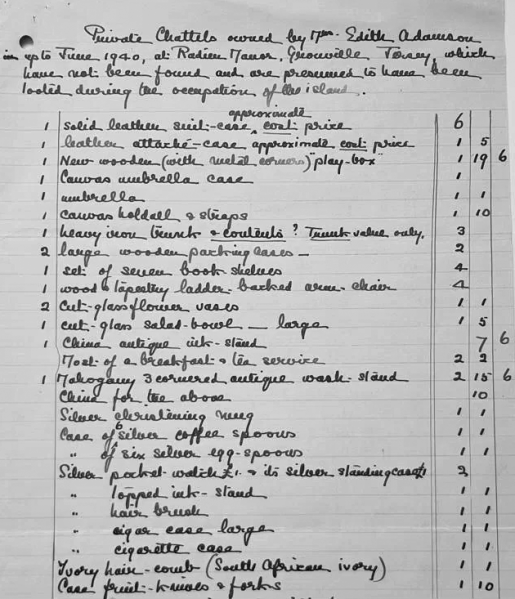 Private Chattels owned by Mrs. Edith Adamson
in up to June 1940, at Radier Manor, Grouville Jersey, which
have not been found and are presumed to have been
looted during the occupation of the island.
approximate
1 solid leather suit-case, cost price 6
1 leather attaché-case approximate cost price 1 5
1 New wooden (with metal corners) "play-box" 1 19 6
1 Canvas umbrella case 1
1 umbrella 1 1
1 canvas holdall & straps 1 10
1 heavy iron trunk & contents ? Trunk value only. 3
2 large wooden packing cases - 2
1 set of seven book shelves 4
1 wood & tapestry ladder-backed arm-chair 4
2 Cut-glass flower vases 1 1
1 cut-glass salad-bowl - large 1 5
1 China antique ink-stand 7 6
Most of a breakfast & tea service 2 2
1 Mahogany 3 cornered antique wash-stand 2 15 6
China for the above 10
Silver christening mug 1 1
Case of 6 silver coffee spoons 1 1
" of six silver egg-spoons 1 1
Silver pocket-watch £1. & its silver standing case £1 2
" topped ink-stand 1 1
" hair brush 1 1
" cigar case large 1 1
" cigarette case 1 1
Ivory hair-comb (South African ivory) 1 1
Case fruit-knives & forks 1 10